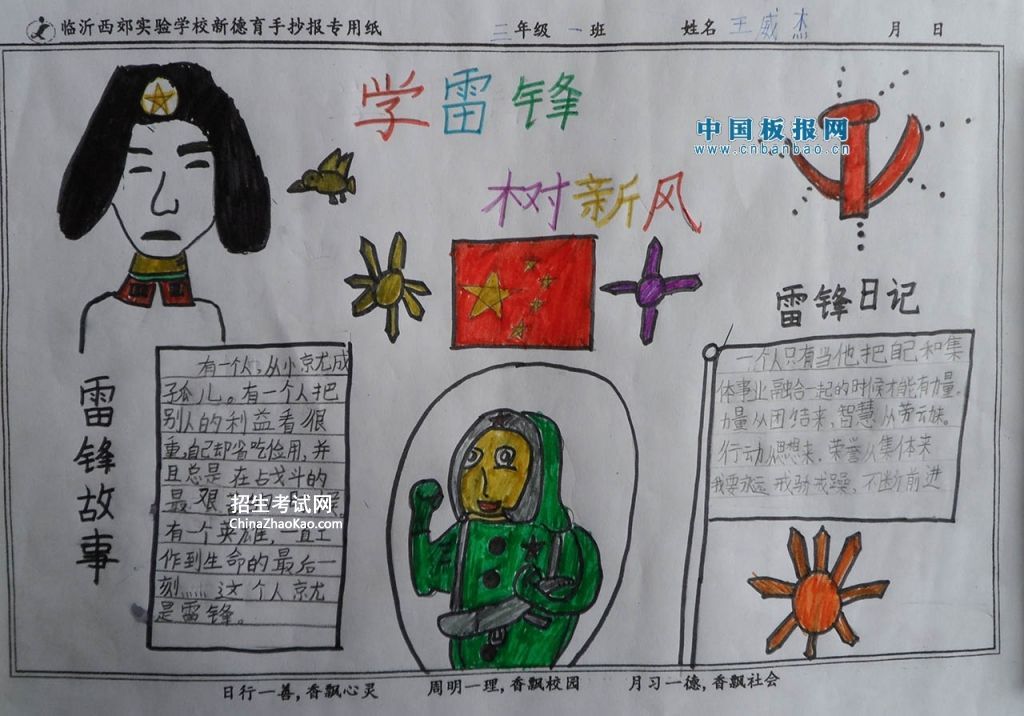 临沂西郊实验学校新德育手抄报专用纸 三年级 一班 姓名 王威杰 月 日
学雷锋
树新风
中国板报网
www.cnbanbao.cn
雷锋日记
雷锋故事
有一个人,从小京尤成
孤儿。有一个人把
别人的利益看很
重,自己却省吃俭用,并
且总是在占戈斗的
最艰
招生考试网
ChinaZhaoKao.com
有一个英雄,一直工
作到生命的最后一
刻……这个人京尤
是雷锋。
一个人只有当他把自己和集
体事业融合一起的时候才能有力量。
力量从团结来,智慧从劳动来。
行动从思想来,荣誉从集体来
我要永远戒骄戒躁,不断前进
日行一善,香飘心灵 周明一理,香飘校园 月习一德,香飘社会